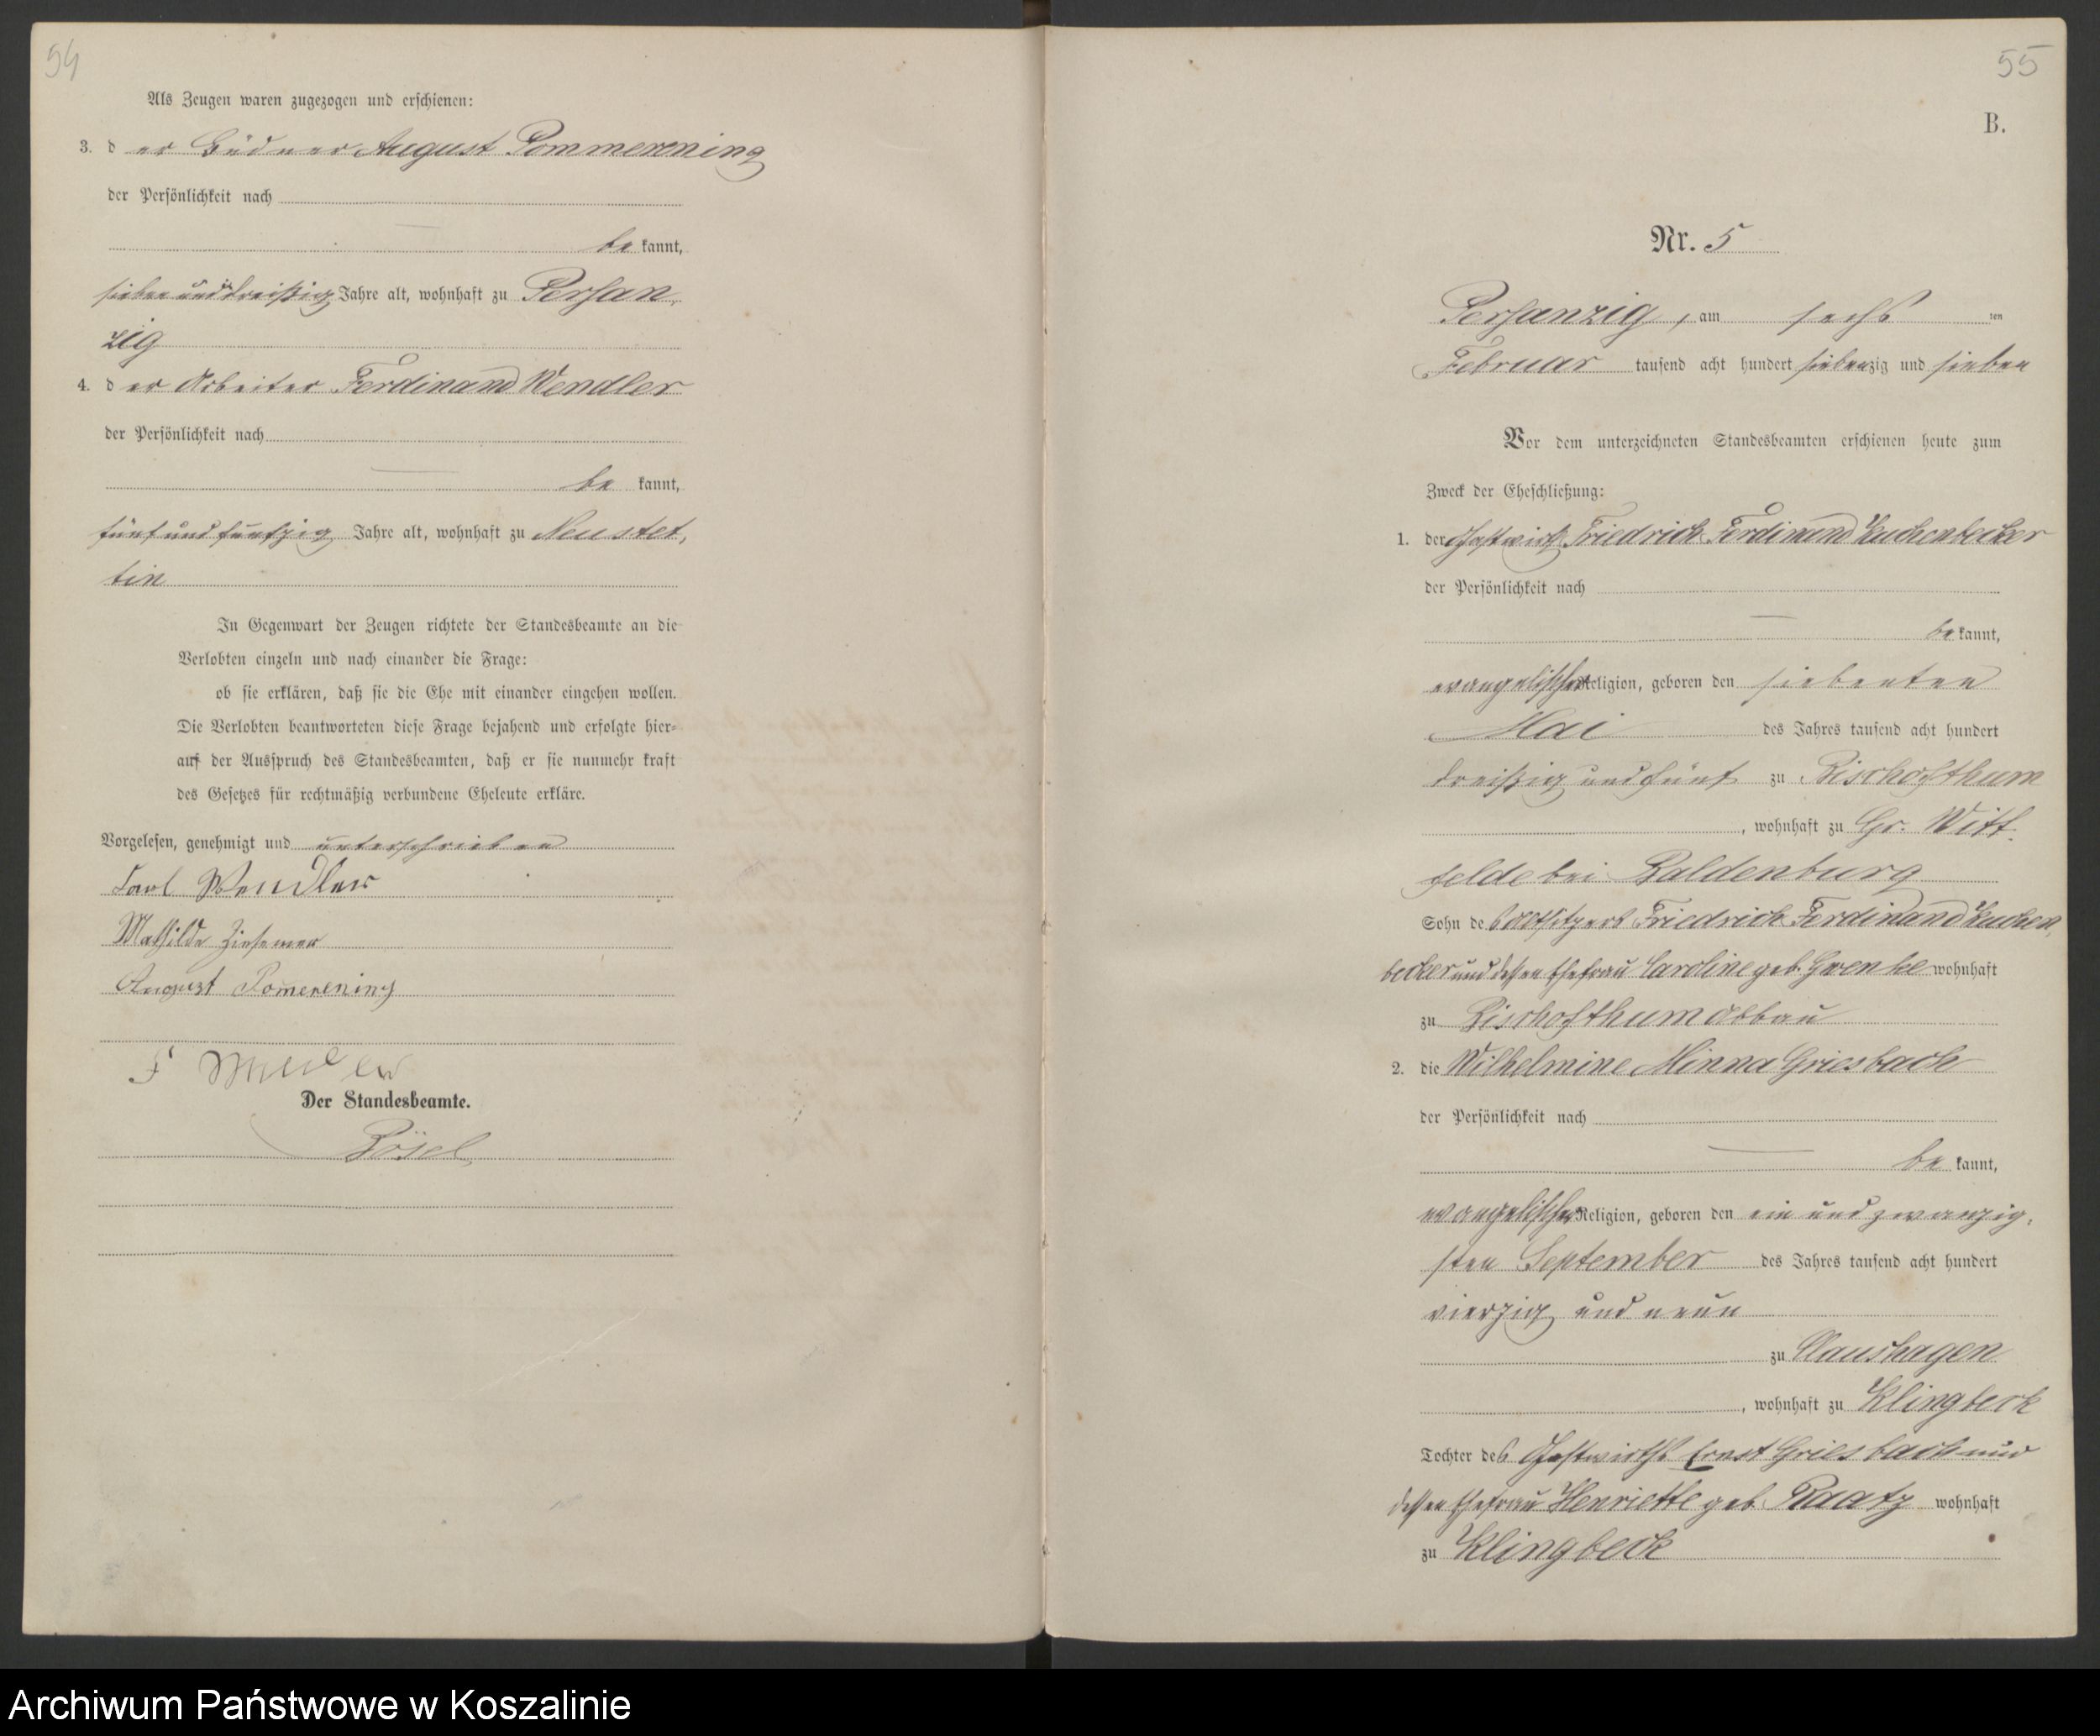 54
Als Zeugen waren zugezogen und erschienen:
3. d er Büdner August Pommerening
der Persönlichkeit nach
be kannt,
sieben und dreißig Jahre alt, wohnhaft zu Persan-
zig
4. d er Arbeiter Ferdinand Wendler
der Persönlichkeit nach
be kannt,
fünf und fünfzig Jahre alt, wohnhaft zu Neustet-
tin
In Gegenwart der Zeugen richtete der Standesbeamte an die
Verlobten einzeln und nach einander die Frage:
ob sie erklären, daß sie die Ehe mit einander eingehen wollen.
Die Verlobten beantworteten diese Frage bejahend und erfolgte hier-
auf der Ausspruch des Standesbeamten, daß er sie nunmehr kraft
des Gesetzes für rechtmäßig verbundene Eheleute erkläre.
Vorgelesen, genehmigt und unterschrieben
Carl Wendler
Mathilde Ziesemer
August Pomerening
F
Der Standesbeamte.
Bösel
55
B.
Nr. 5
Persanzig, am sechs ten
Februar tausend acht hundert siebenzig und sieben
Vor dem unterzeichneten Standesbeamten erschienen heute zum
Zweck der Eheschließung:
1. der Gastwirth Friedrich Ferdinand Kuchenbecker
der Persönlichkeit nach
be kannt,
evangelischer Religion, geboren den siebenten
Mai des Jahres tausend acht hundert
dreißig und fünf zu Bischofthum
, wohnhaft zu Gr. Witt-
felde bei Baldenburg
Sohn des Friedrich Ferdinand Kuchen-
becker und dessen Ehefrau Caroline geb. wohnhaft
zu Bischofthum Abbau
2. die Wilhelmine Minna Griesbach
der Persönlichkeit nach
be kannt,
evangelischer Religion, geboren den ein und zwanzig-
sten September des Jahres tausend acht hundert
vierzig und neun
zu Claushagen
, wohnhaft zu Klingbeck
Tochter des Gastwirths Ernst Griesbach und
dessen Ehefrau Henriette geb. Raatz wohnhaft
zu Klingbeck
Archiwum Państwowe w Koszalinie